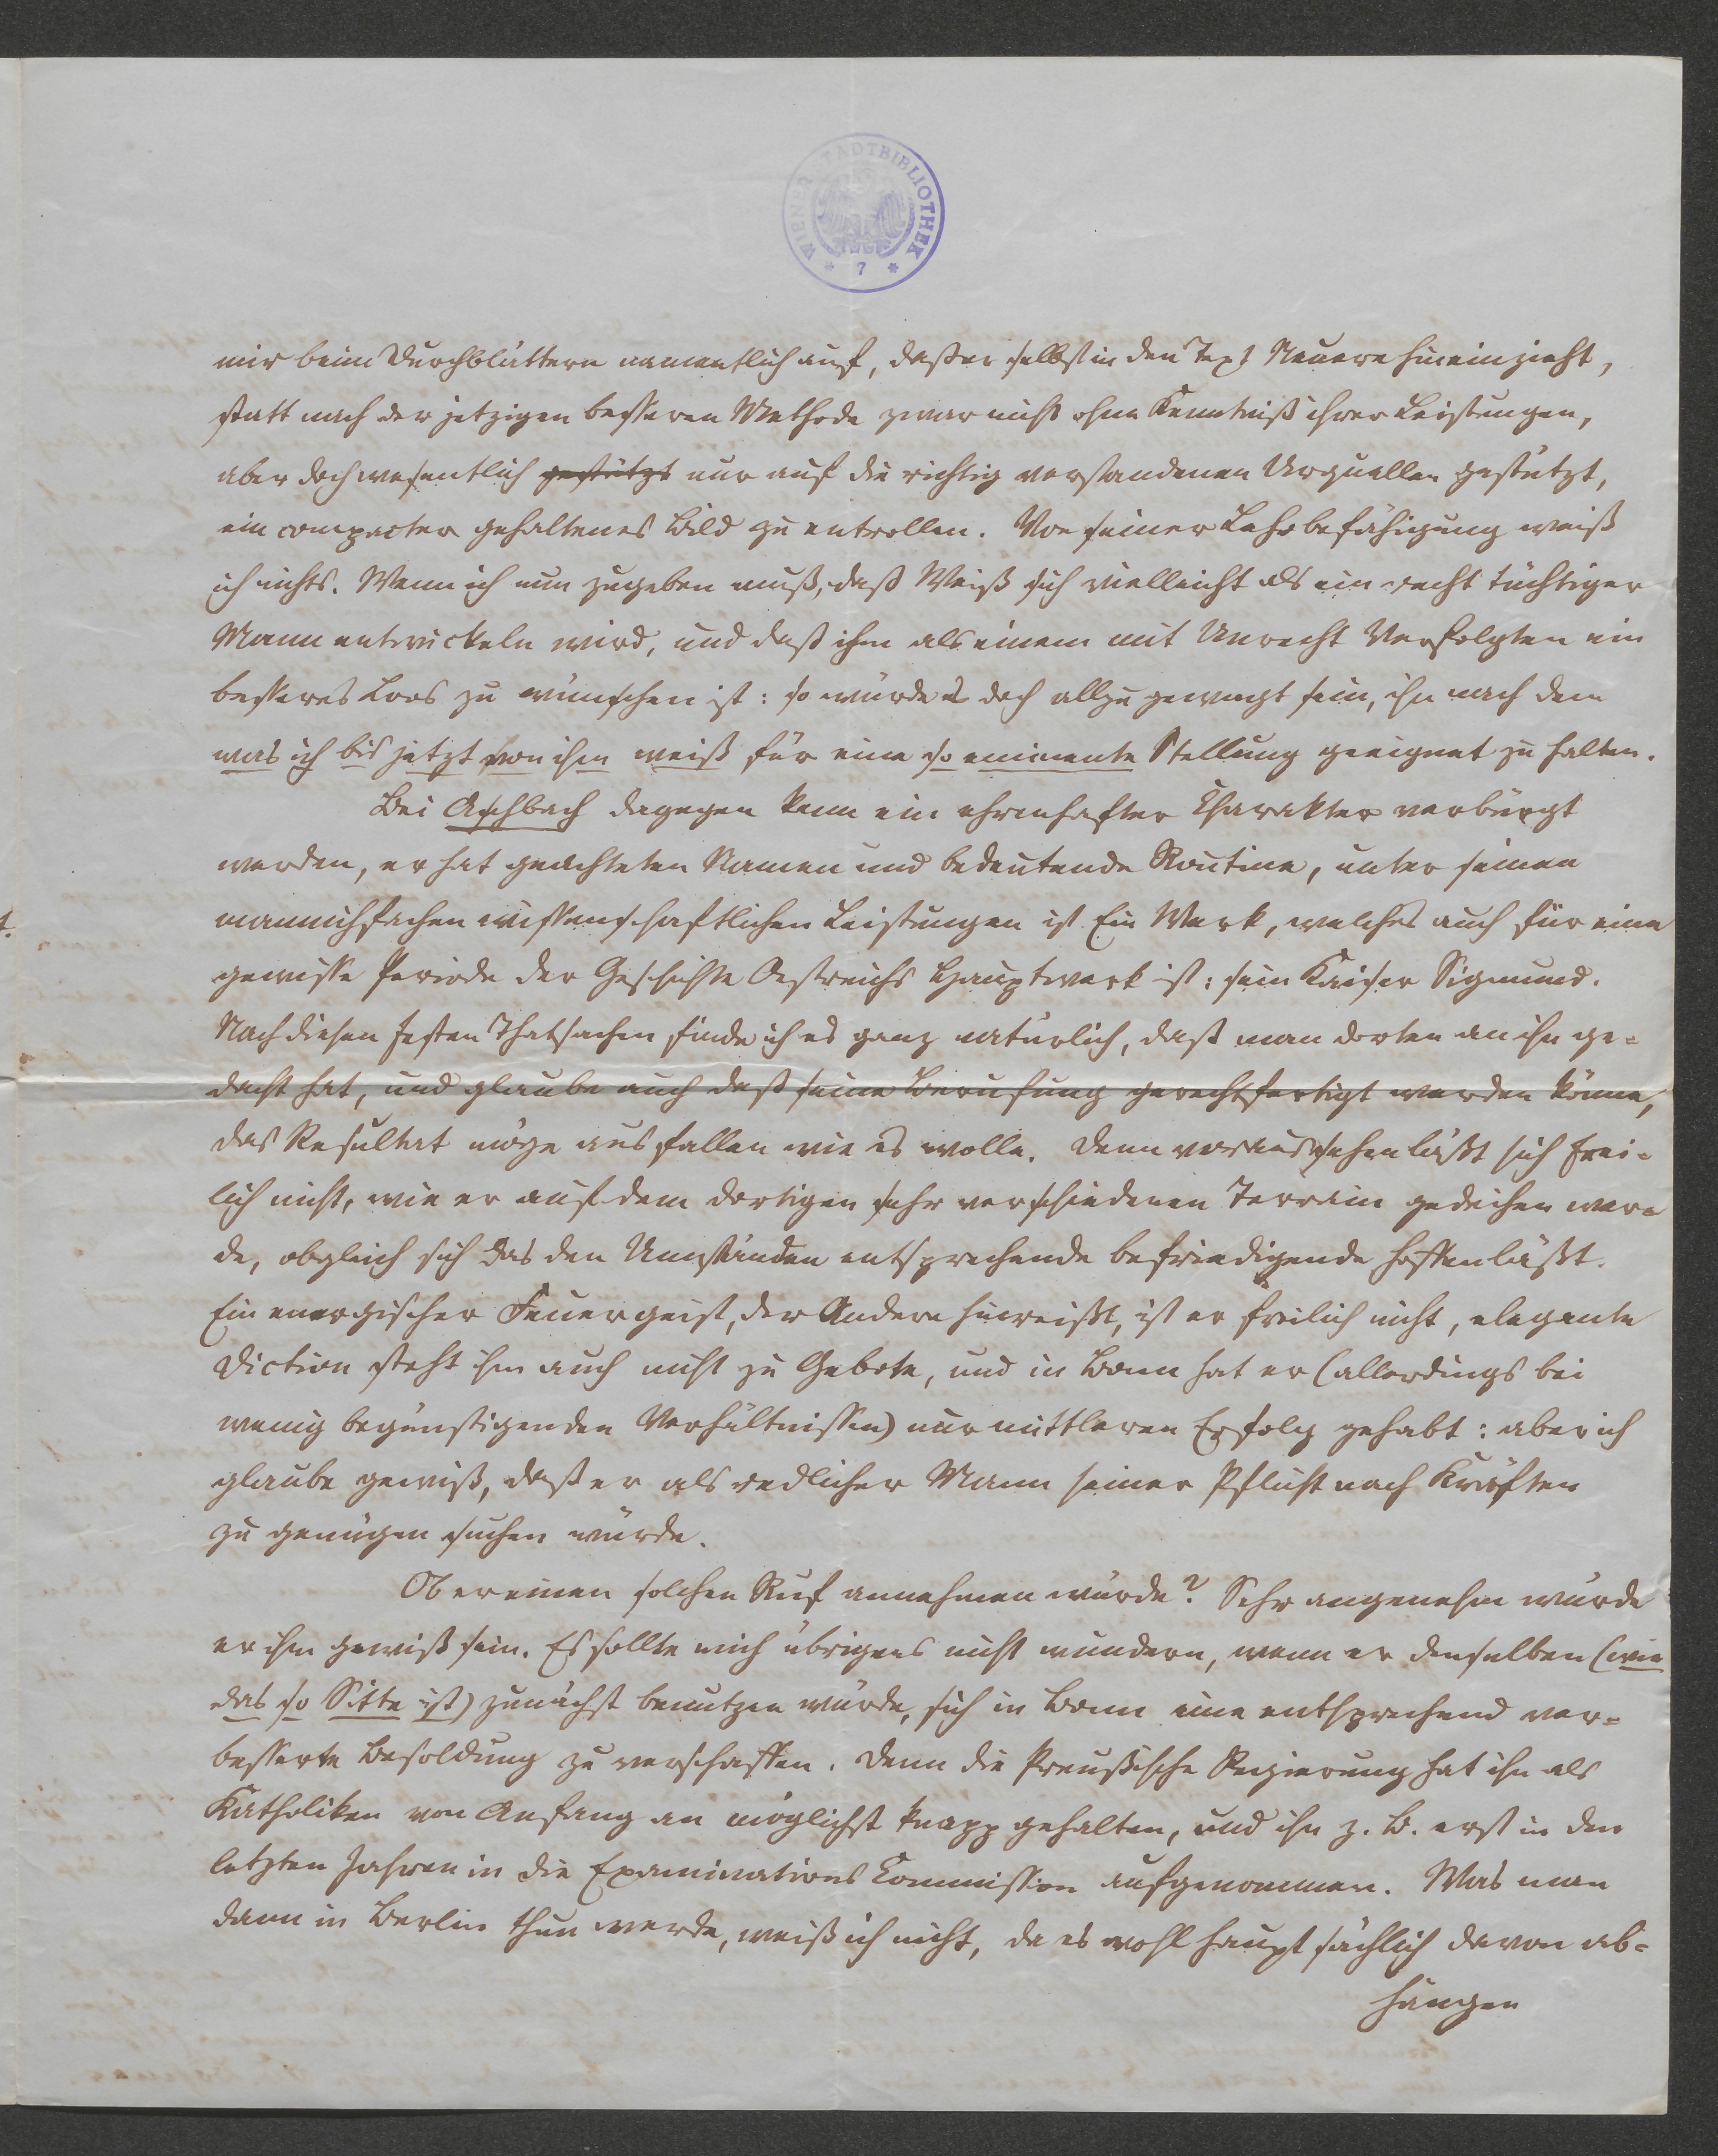 WIENER STADTBIBLIOTHEK
* 7 *
mir beim Durchblättern namentlich auf, daß er selbst in den Text Neuere hineinzieht,
statt nach der jetzigen besseren Methode zwar nicht ohne Kenntniß ihrer Leistungen,
aber doch wesentlich gestützt nur auf die richtig verstandenen Urquellen gestützt,
ein compacter gehaltenes Bild zu entrollen. Von seiner Lehrbefähigung weiß
ich nichts. Wenn ich nun zugeben muß, daß Weiß sich vielleicht als ein recht tüchtiger
Mann entwickeln wird, und daß ihm als einem mit Unrecht Verfolgten ein
besseres Loos zu wünschen ist: so würde es doch allzu gewagt sein, ihn nach dem
was ich bis jetzt von ihm weiß für eine so eminente Stellung geeignet zu halten.
Bei Aschbach dagegen kann ein ehrenhafter Charakter verbürgt
werden, er hat geachteten Namen und bedeutende Routine, unter seinen
mannichfachen wissenschaftlichen Leistungen ist Ein Werk, welches auch für eine
gewisse Periode der Geschichte Oestreichs Hauptwerk ist: sein Kaiser Sigmund.
Nach diesen festen Thatsachen finde ich es ganz natürlich, daß man dorten an ihn ge=
dacht hat, und glaube auch daß seine Berufung gerechtfertigt werden könne,
das Resultat möge ausfallen wie es wolle. Denn voraussehen läßt sich frei=
lich nicht, wie er auf dem dortigen sehr verschiedenen Terrain gedeihen wer=
de, obgleich sich das den Umständen entsprechende befriedigende hoffen läßt.
Ein energischer Feuergeist, der Andere hinreißt, ist er freilich nicht, elegante
Diction steht ihm auch nicht zu Gebote, und in Bonn hat er (allerdings bei
wenig begünstigenden Verhältnissen) nur mittleren Erfolg gehabt: aber ich
glaube gewiß, daß er als redlicher Mann seiner Pflicht nach Kräften
zu genügen suchen würde.
Ob er einen solchen Ruf annehmen würde? Sehr angenehm würde
er ihm gewiß sein. Es sollte mich übrigens nicht wundern, wenn er denselben (wie
das so Sitte ist) zunächst benutzen würde, sich in Bonn eine entsprechend ver=
besserte Besoldung zu verschaffen. Denn die Preußische Regierung hat ihn als
Katholiken von Anfang an möglichst knapp gehalten, und ihn z. B. erst in den
letzten Jahren in die Examinations Commission aufgenommen. Was man
dann in Berlin thun werde, weiß ich nicht, da es wohl hauptsächlich davon ab=
hängen